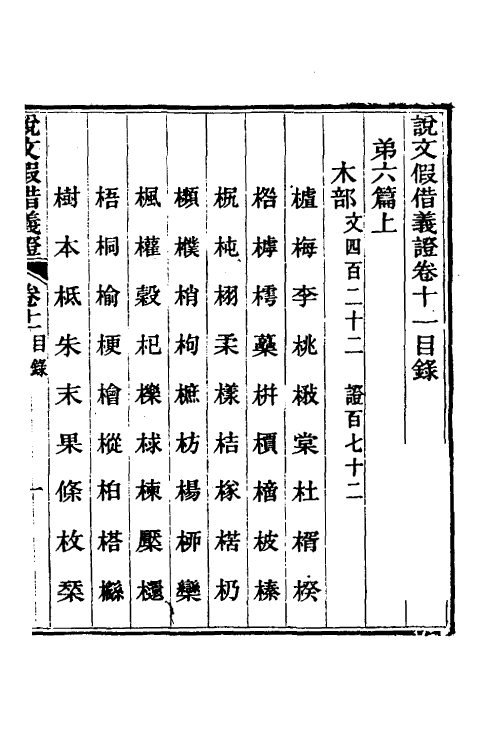 說文假借義證卷十一目錄
弟六篇上
木部文四百二十二 證百七十二
樝梅李桃楸棠杜楈楑
楁樗樗蘽栟櫝樀柀榛
杶栩柔樣桔椓楛杒
樸梢枸樜枋楊柳欒
楓權榖杞櫟梂楝檿檼
梧桐榆梗檜樅柏榙
樹本柢朱末果條枚栞
說文假借義證 卷十一目錄 一